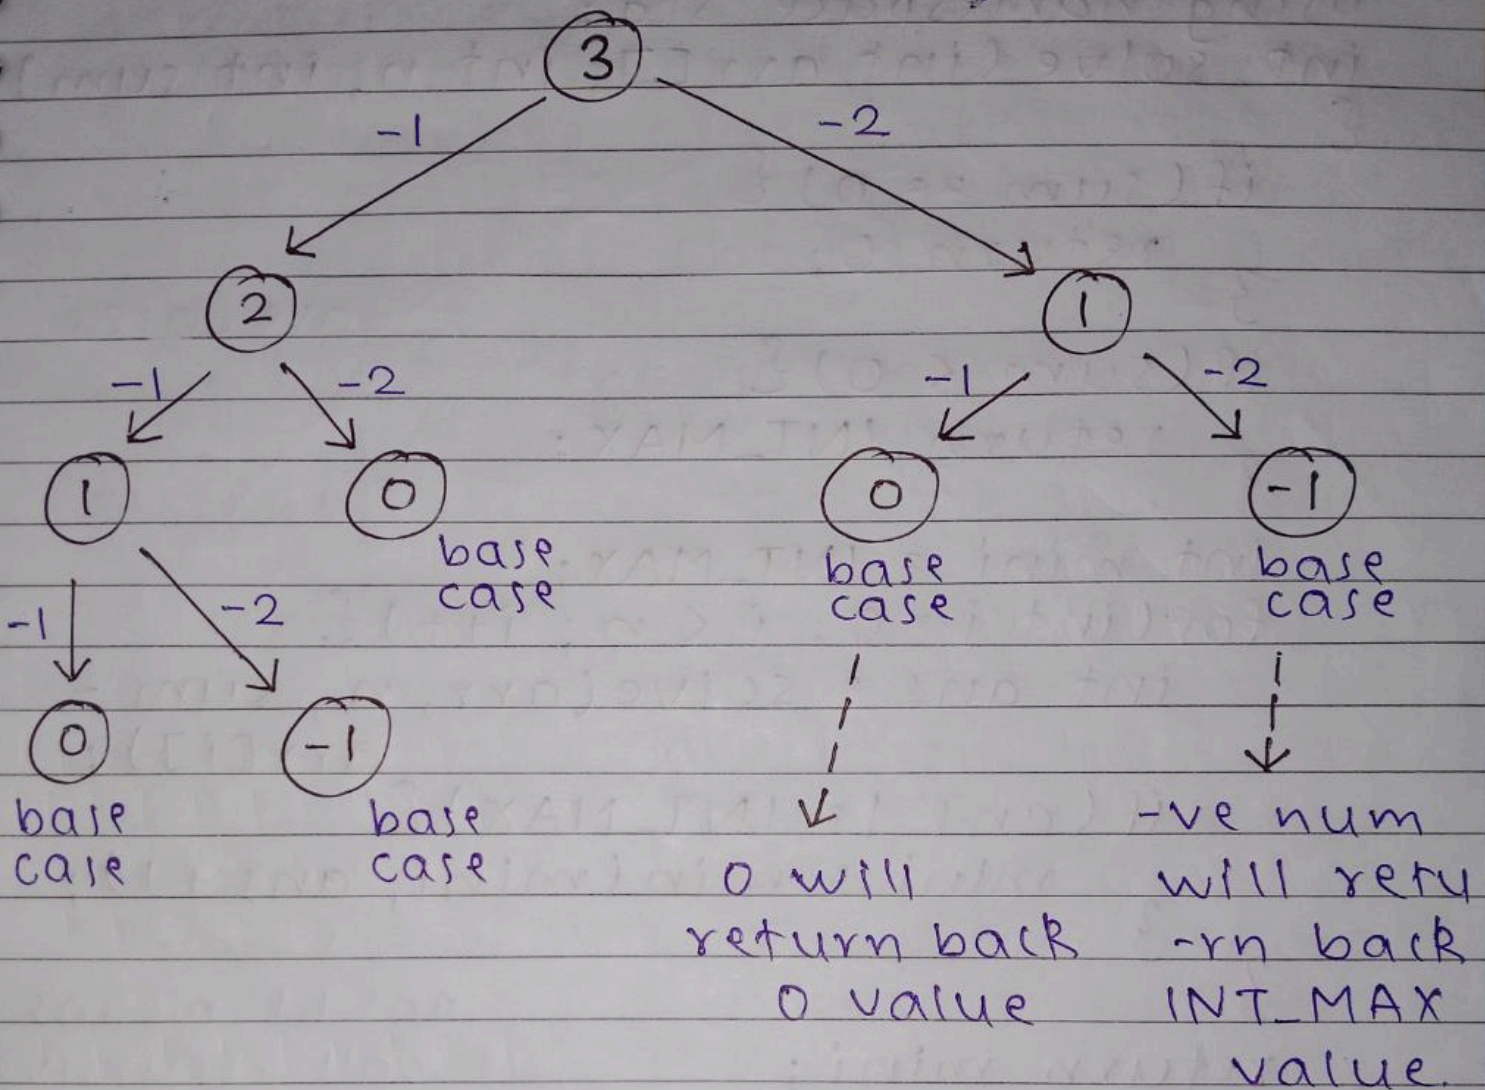 3
-1 -2
2 1
-1 -2 -1 -2
1 0 0 -1
base case
base case
base case
-1 -2
0 -1
base case
base case
0 will
return back
0 value
-ve num
will retu
-rn back
INT_MAX
value.